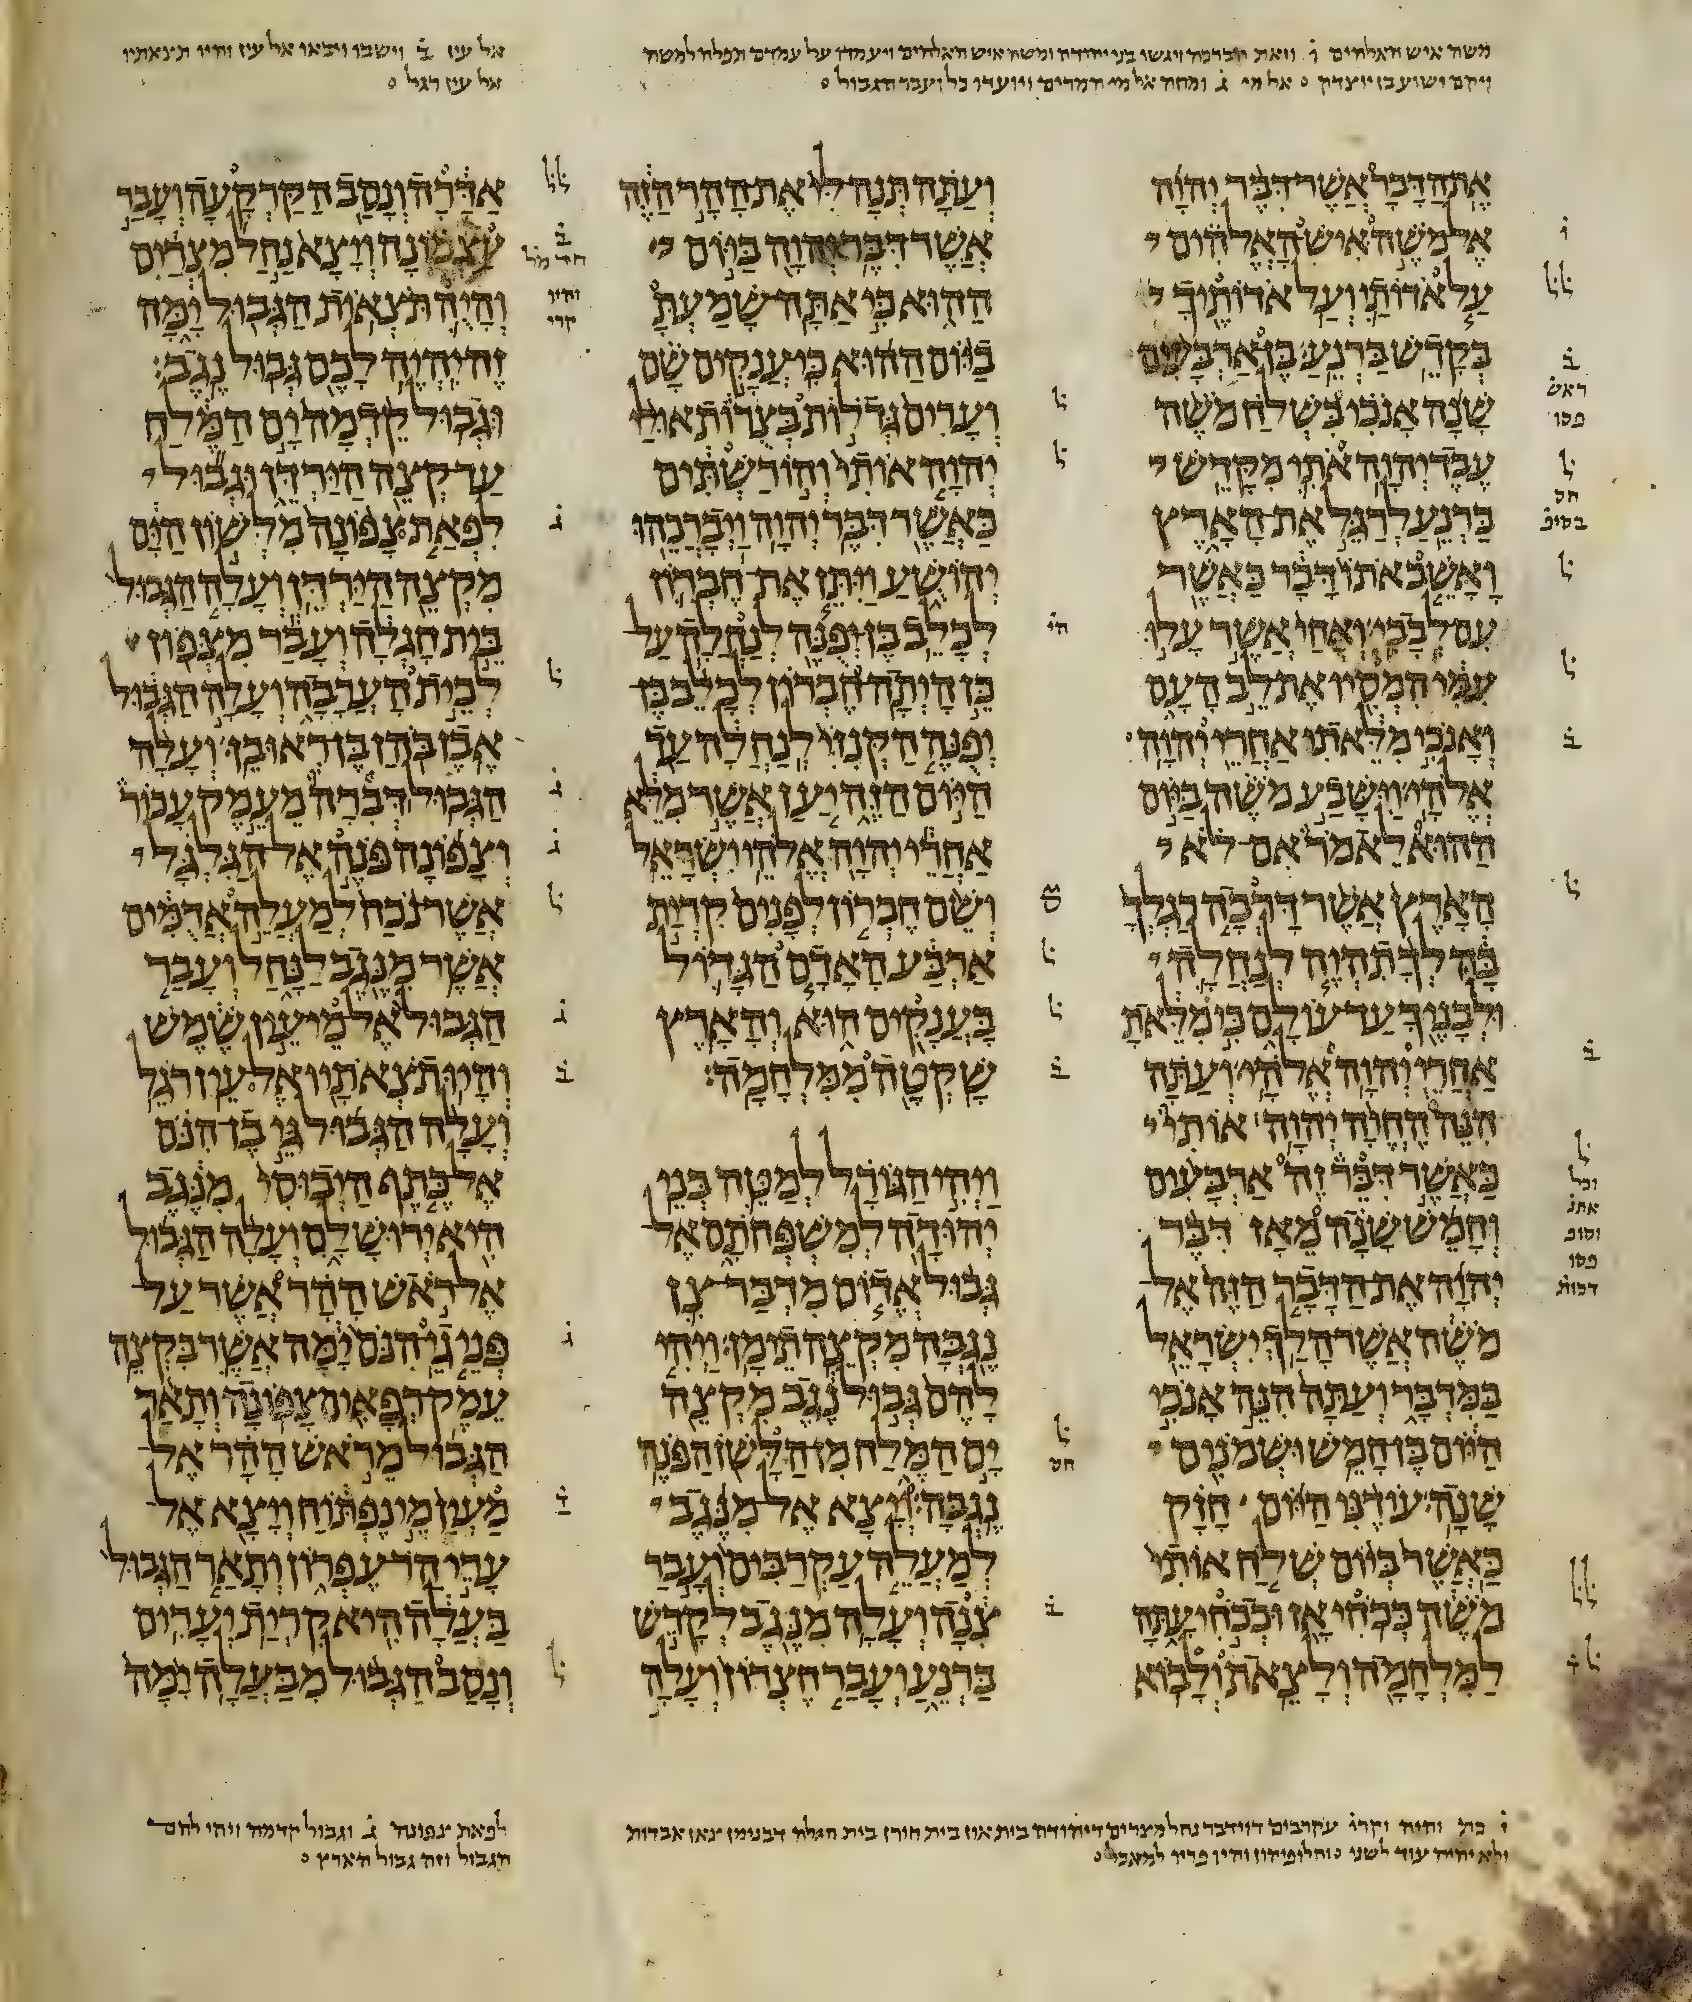 משה איש האלהים ו וזאת הברכה ויגשו בני יהודה ומשה איש האלהים ויעמדו על עמדם תפלה למשה
ויקם ישוע בן יוצדק ○ אל מי ג ומחה אל מי המרים ויועדו כל ועבר הגבול ○
אל עין ב וישבו ויבאו אל עין והיו תצאתיו
אל עין רגל ○
את הדבר אשר דבר יהוה
אל משה איש האלהים
על אדותי ועל אדותיך
בקדש ברנע בן ארבעים
שנה אנכי בשלח משה
עבד יהוה אתי מקדש
ברנע לרגל את הארץ
ואשב אתו דבר כאשר
עם לבבי ואחי אשר עלו
עמי המסיו את לב העם
ואנכי מלאתי אחרי יהוה
אלהי וישבע משה ביום
ההוא לאמר אם לא
הארץ אשר דרכה רגלך
בה לך תהיה לנחלה
ולבניך עד עולם כי מלאת
אחרי יהוה אלהי ועתה
הנה החיה יהוה אותי
כאשר דבר זה ארבעים
וחמש שנה מאז דבר
יהוה את הדבר הזה אל
משה אשר הלך ישראל
במדבר ועתה הנה אנכי
היום בן חמש ושמנים
שנה עודני היום חזק
כאשר ביום שלח אותי
משה ככחי אז וככחי עתה
למלחמה ולצאת ולבוא
ועתה תנה לי את ההר הזה
אשר דבר יהוה ביום
ההוא כי אתה שמעת
ביום ההוא כי ענקים שם
וערים גדלות בצרות אולי
יהוה אותי והורשתים
כאשר דבר יהוה ויברכהו
יהושע ויתן את חברון
לכלב בן יפנה לנחלה על
כן היתה חברון לכלב בן
יפנה הקנזי לנחלה עד
היום הזה יען אשר מלא
אחרי יהוה אלהי ישראל
ושם חברון לפנים קרית
ארבע האדם הגדול
בענקים הוא והארץ
שקטה ממלחמה
ויהי הגורל למטה בני
יהודה למשפחתם אל
גבול אדום מדבר צן
נגבה מקצה תימן ויהי
להם גבול נגב מקצה
ים המלח מן הלשן הפנה
נגבה ויצא אל מנגב
למעלה עקרבים ועבר
צנה ועלה מנגב לקדש
ברנע ועבר חצרון ועלה
אדרה ונסב הקרקעה ועבר
עצמונה ויצא נחל מצרים
והיה תצאות הגבול ימה
זה יהיה לכם גבול נגב
וגבול קדמה ים המלח
עד קצה הירדן וגבול
לפאת צפונה מלשון הים
מקצה הירדן ועלה הגבול
בית חגלה ועבר מצפון
לבית הערבה ועלה הגבול
אבן בהן בן ראובן ועלה
הגבול דברה מעמק עכור
וצפונה פנה אל הגלגל
אשר נכח למעלה אדמים
אשר מנגב לנחל ועבר
הגבול אל מי עין שמש
והיו תצאתיו אל עין רגל
ועלה הגבול גי בן הנם
אל כתף היבוסי מנגב
היא ירושלם ועלה הגבול
אל ראש ההר אשר על
פני גי הנם ימה אשר בקצה
עמק רפאים צפונה ותאר
הגבול מראש ההר אל
מעין מי נפתוח ויצא אל
ערי הר עפרון ותאר הגבול
בעלה היא קרית יערים
ונסב הגבול מבעלה ימה
ו כת והיה וקרי עקרבים דוידבר נחל מצרים דיהודה בית און בית חורן בית חגלה דבנימן
ולא יהיה עוד לשני
לפאת צפונה ג וגבול קדמה ויהי להם
הגבול וזה גבול הארץ ○